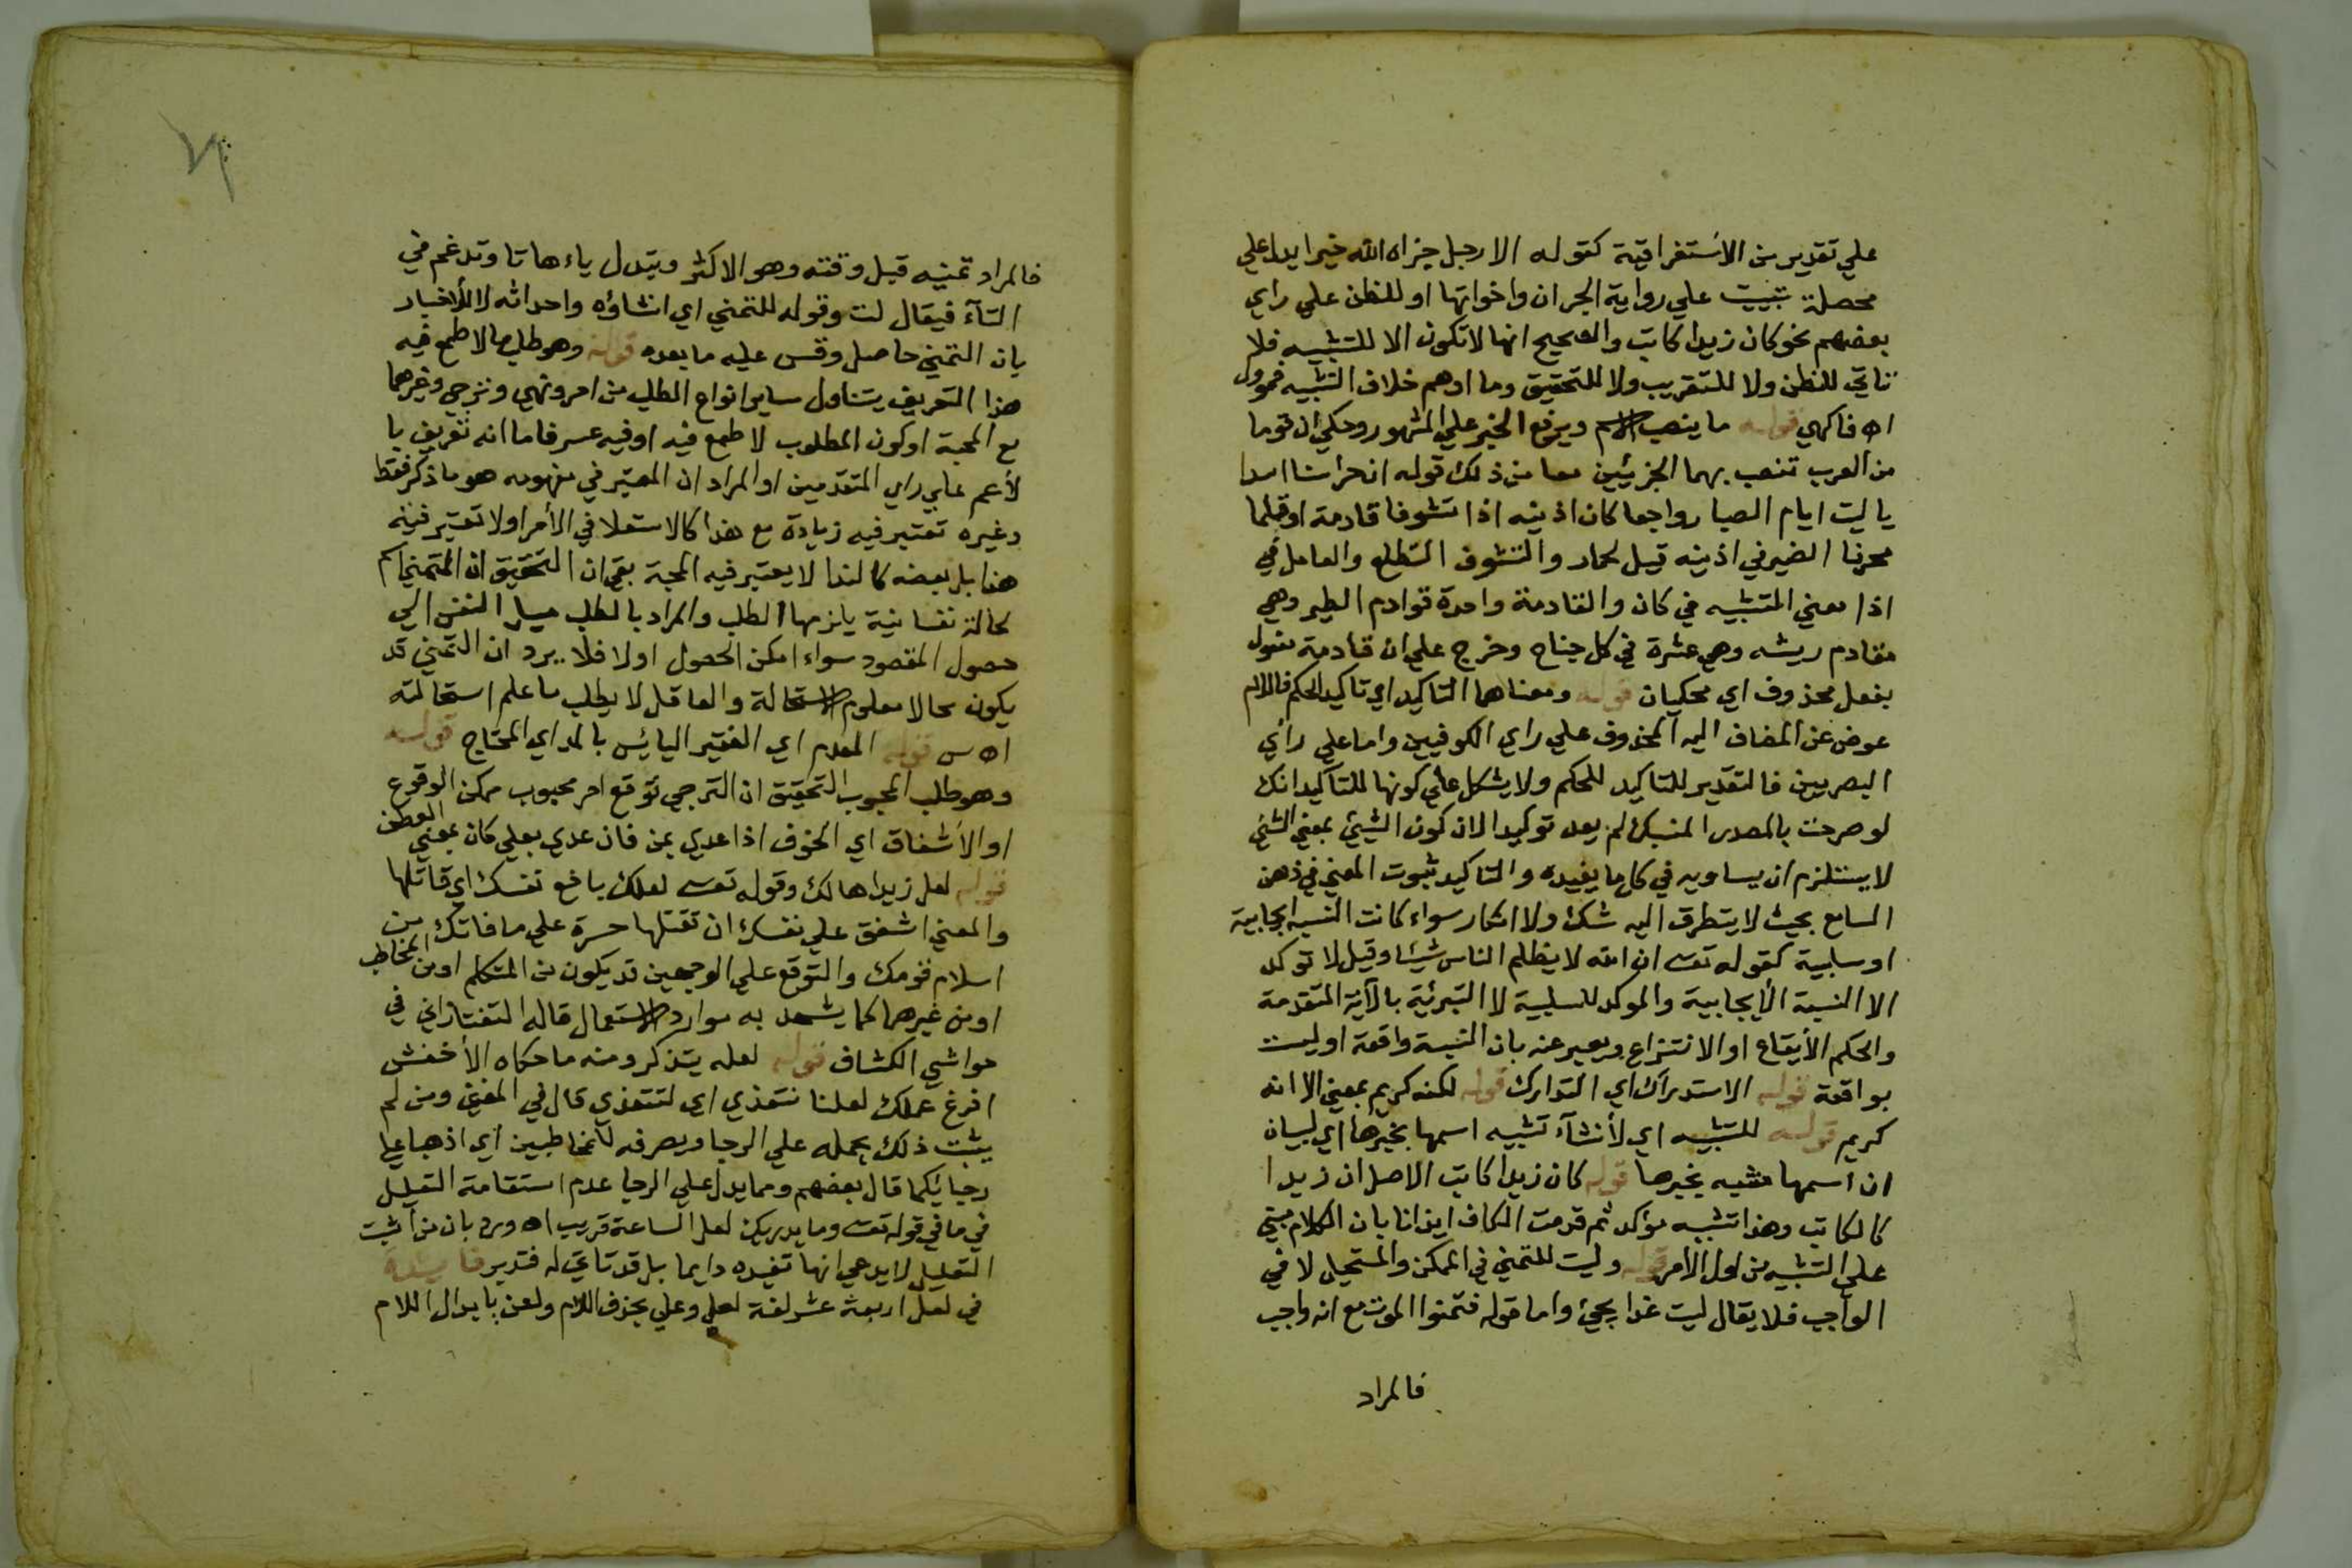 علي تقدير من الاستغراقية كقوله الا رجل جزاه الله خيرا يدل علي
محصلة تبيت علي رواية الجر ان واخواتها او للظن علي راي
بعضهم نحو كان زيدا كاتب والصحيح انها لا تكون الا للتشبيه فلا
تاتي للظن ولا للتقريب ولا للتحقيق وما اوهم خلاف التشبيه فمؤول
اه فاكهي قوله ما ينصب الاسم ويرفع الخبر علي المشهور وحكي ان قوما
من العرب تنصب بهما الجزئين معا من ذلك قوله ان حراسنا اسدا
يا ليت ايام الصبا رواجعا كان اذنيه اذا تشوفا قادمة او قلما
محرفا الضمير في اذنيه قيل لحمار والتشوف التطلع والعامل في
اذا معني التشبيه في كان والقادمة واحدة قوادم الطير وهي
مقادم ريشه وهي عشرة في كل جناح وخرج علي ان قادمة مفعول
بفعل محذوف اي محكيان قوله ومعناهما التاكيد اي تاكيد الحكم فاللام
عوض عن المضاف اليه المحذوف علي راي الكوفيين واما علي راي
البصريين فالتقدير للتاكيد للحكم ولا يشكل علي كونها للتاكيد انك
لو صرحت بالمصدر المنسبك لم يعد توكيدا لان كون الشيئ بمعني الشئ
لا يستلزم ان يساويه في كل ما يفيده والتاكيد ثبوت المعني في ذهن
السامع بحيث لا يتطرق اليه شك ولا انكار سواء كانت النسبة ايجابية
او سلبية كقوله تعـ ان الله لا يظلم الناس شيئا وقيل لا توكد
الا النسبة الأيجابية والموكد للسلبية لا التبرئية بالآية المتقدمة
والحكم الأيقاع او الانتزاع ويعبر عنه بان النسبة واقعة او ليست
بواقعة قوله الاستدراك اي التدارك قوله لكنه كريم بمعني الا انه
كريم قوله للتشبيه اي لأنشآء تشبيه اسمها بخبرها اي لبيان
ان اسمها مشبه بخبرها قوله كان زيدا كاتب الاصل ان زيدا
كالكاتب وهذا تشبيه مؤكد ثم قدمت الكاف ايذانا بان الكلام مبني
علي التشبيه من اول الامر قوله وليت للتمني في الممكن والمستحيل لا في
الواجب فلا يقال ليت غدا يجيئ واما قوله فتمنوا الموت مع انه واجب
فالمراد
فالمراد تمنيه قبل وقته وهو الاكثر وتبدل ياءها تا وتدغم في
التآء فيقال لت وقوله للتمني اي انشاؤه واحداثه لا للأخبار
بان التمني حاصل وقس عليه ما بعده قوله وهو طلب ما لا طمع فيه
هذا التعريف يتناول ساير انواع الطلب من امر ونهي وترجي وغيرهما
مع المحبة او كون المطلوب لا طمع فيه او فيه عسر فاما انه تعريف با
لأعم علي راي المتقدمين او المراد ان المعتبر في مفهومه هو ما ذكر فقط
وغيره تعتبر فيه زيادة مع هذا كالاستعلا في الأمر او لا تعتبر فيه
هذا بل بعضه كالندا لا يعتبر فيه المحبة بقي ان التحقيق ان التمني اسم
لحالة نفسانية يلزمها الطلب والمراد بالطلب ميل النفس الي
حصول المقصود سواء امكن الحصول اولا فلا يرد ان التمني قد
يكون محالا معلوم الاستحالة والعاقل لا يطلب ما علم استحالته
اه س قوله المعدم اي الفقير اليائس بالمد اي المحتاج قوله
وهو طلب المحبوب التحقيق ان الترجي توقع امر محبوب ممكن الوقوع
او الأشفاق اي الخوف اذا عدي بمن فان عدي بعلي كان بمعني العطف
قوله لعل زيدا هالك وقوله تعـ لعلك باخع نفسك اي قاتلها
والمعني اشفق علي نفسك ان تقتلها حسرة علي ما فاتك من
اسلام قومك والتوقع علي الوجهين قد يكون من المتكلم او من المخاطب
او من غيرهما كما يشهد به موارد الاستعمال قاله التفتازاني في
حواشي الكشاف قوله لعله يتذكر ومنه ما حكاه الأخفش
افرغ عملك لعلنا نتغذي اي لنتغذي قال في المغني ومن لم
يثبت ذلك يحمله علي الرجا ويصرفه للمخاطبين اي اذهبا علي
رجائكما قال بعضهم ومما يدل علي الرجا عدم استقامة التعليل
في ما في قوله تعـ وما يدريك لعل الساعة قريب اه ورد بان من اثبت
التعليل لا يدعي انها تفيده دايما بل قد تاتي له فتدبر فايدة
في لعل اربعة عشر لغة لعل وعل بحذف اللام ولعن بابدال اللام